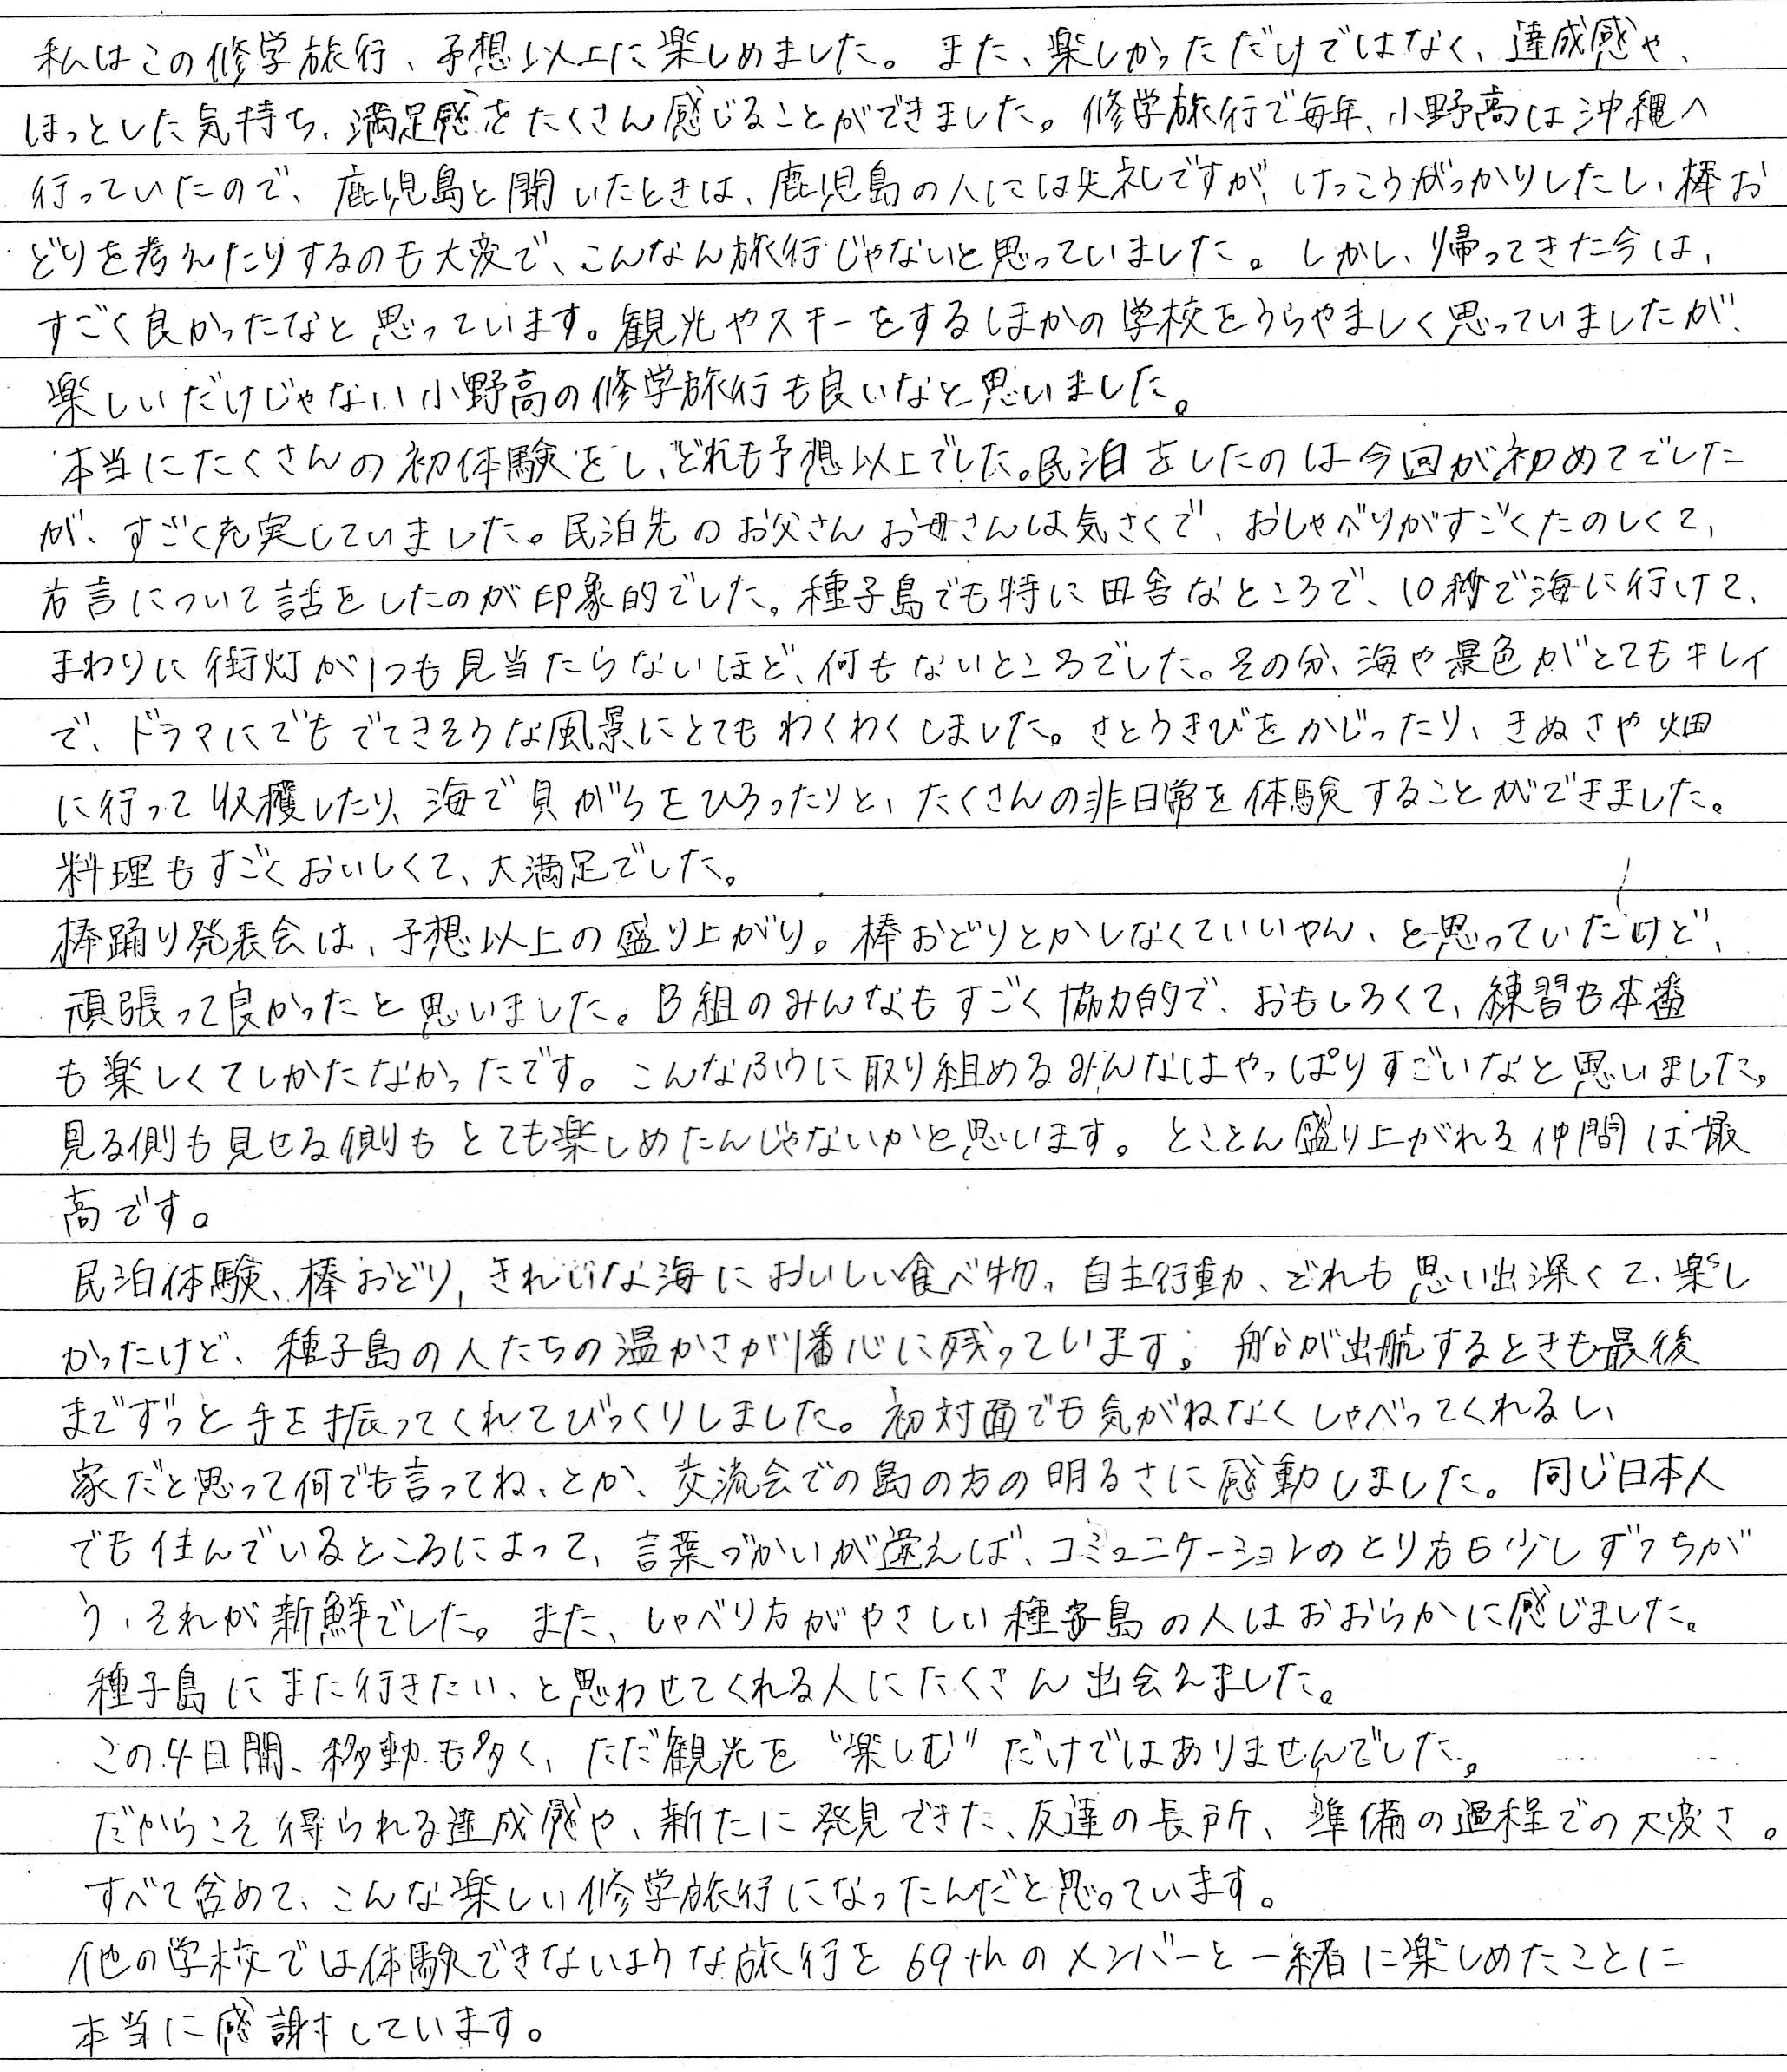 私はこの修学旅行、予想以上に楽しめました。また、楽しかっただけではなく、達成感や、
ほっとした気持ち、満足感をたくさん感じることができました。修学旅行で毎年、小野高は沖縄へ
行っていたので、鹿児島と聞いたときは、鹿児島の人には失礼ですが、けっこうがっかりしたし、棒お
どりを考えたりするのも大変で、こんなん旅行じゃないと思っていました。しかし、帰ってきた今は、
すごく良かったなと思っています。観光やスキーをするほかの学校をうらやましく思っていましたが、
楽しいだけじゃない小野高の修学旅行も良いなと思いました。
本当にたくさんの初体験をし、どれも予想以上でした。民泊をしたのは今回が初めてでした
が、すごく充実していました。民泊先のお父さんお母さんは気さくで、おしゃべりがすごくたのしくて、
方言について話をしたのが印象的でした。種子島でも特に田舎なところで、10秒で海に行けて、
まわりに街灯が1つも見当たらないほど、何もないところでした。その分、海や景色がとてもキレイ
で、ドラマにでもでてきそうな風景にとてもわくわくしました。さとうきびをかじったり、きぬさや畑
に行って収穫したり、海で貝がらをひろったりと、たくさんの非日常を体験することができました。
料理もすごくおいしくて、大満足でした。
棒踊り発表会は、予想以上の盛り上がり。棒おどりとかしなくていいやん、と思っていたけど、
頑張って良かったと思いました。B組のみんなもすごく協力的で、おもしろくて、練習も本番
も楽しくてしかたなかったです。こんなふうに取り組めるみんなはやっぱりすごいなと思いました。
見る側も見せる側もとても楽しめたんじゃないかと思います。とことん盛り上がれる仲間は最
高です。
民泊体験、棒おどり、きれいな海においしい食べ物、自主行動、どれも思い出深くて、楽し
かったけど、種子島の人たちの温かさが1番心に残っています。船が出航するときも最後
までずっと手を振ってくれてびっくりしました。初対面でも気がねなくしゃべってくれるし、
家だと思って何でも言ってね、とか、交流会での島の方の明るさに感動しました。同じ日本人
でも住んでいるところによって、言葉づかいが違えば、コミュニケーションのとり方も少しずつちが
う、それが新鮮でした。また、しゃべり方がやさしい種子島の人はおおらかに感じました。
種子島にまた行きたい、と思わせてくれる人にたくさん出会えました。
この4日間、移動も多く、ただ観光を"楽しむ"だけではありませんでした。
だからこそ得られる達成感や、新たに発見できた、友達の長所、準備の過程での大変さ。
すべて含めて、こんな楽しい修学旅行になったんだと思っています。
他の学校では体験できないような旅行を69thのメンバーと一緒に楽しめたことに
本当に感謝しています。